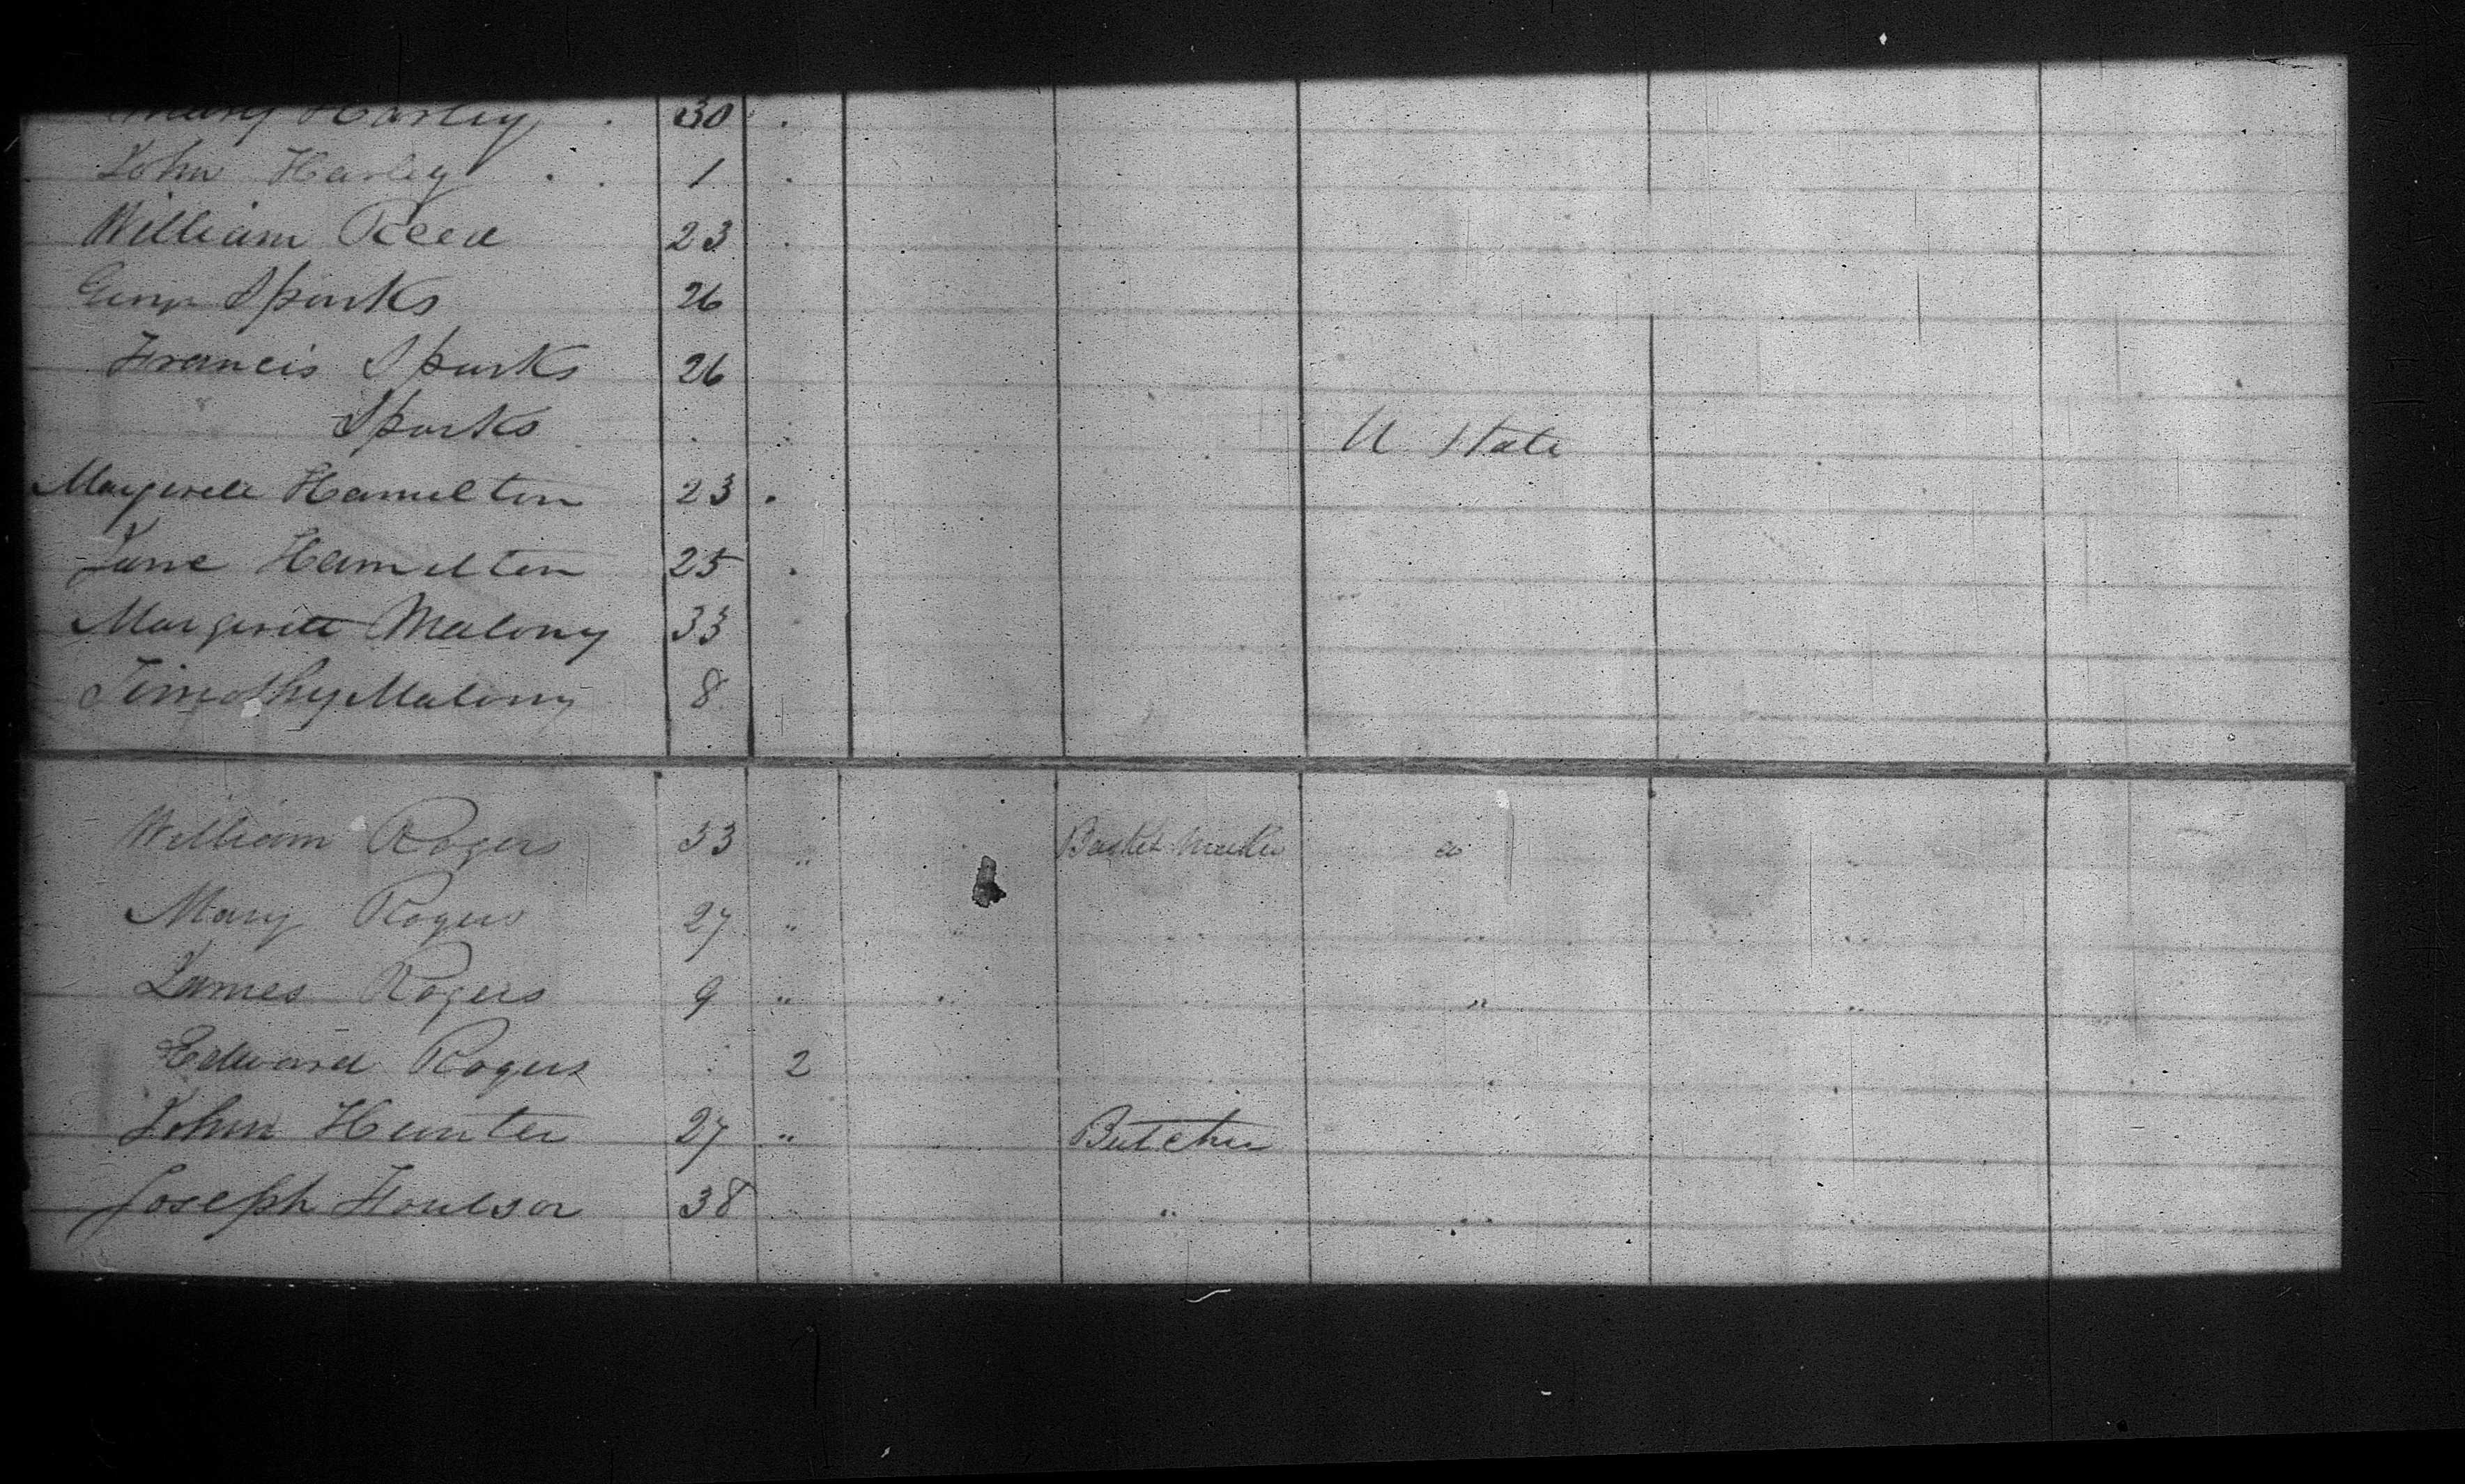 Mary Harley . 30 .
John Harley . . 1 .
William Reed 23 .
Sparks 26
Francis Sparks 26
Sparks . . U State
Margerete Hamilton 23 .
Jane Hamilton 25 .
Margerett Malony 33
Timothy Malony 8
William Rogers 33 " Basket Maker
Mary Rogers 27 " "
James Rogers 9 " " " "
Edward Rogers 2
John Hunter 27 " Butcher
Joseph 38 " "